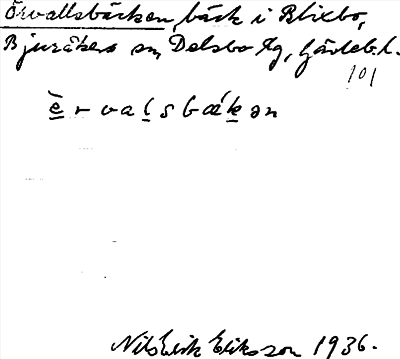 Örvallsbäcken, bäck i Blixbo,
Bjuråkers sn, Delsbo tg, Gävleb. l.
101
èrvalsbäkən
Nils Erik Eliksson 1936.